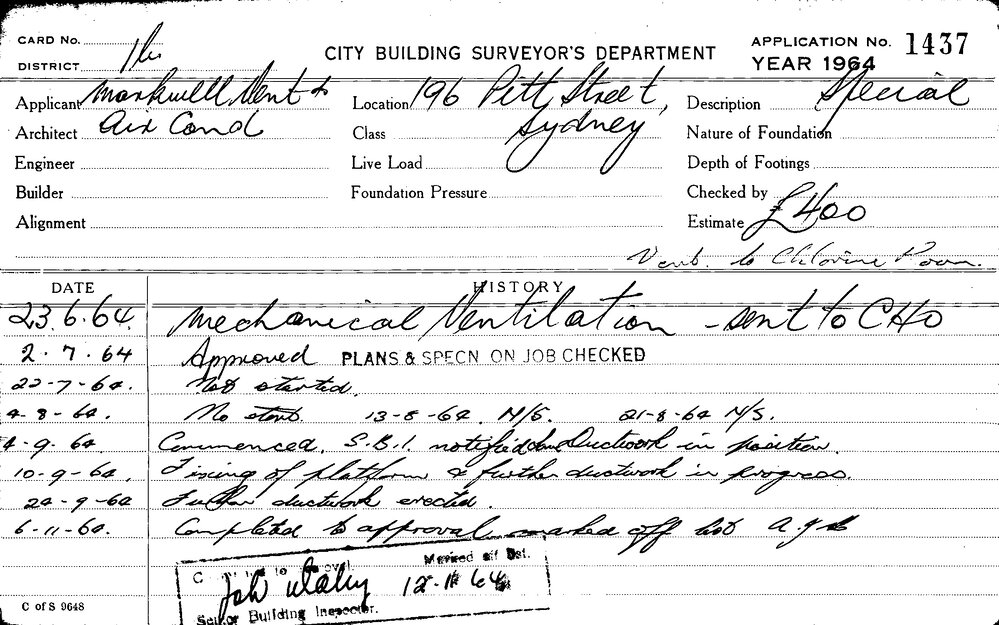 CARD No.
CITY BUILDING SURVEYOR'S DEPARTMENT
APPLICATION No. 1437
DISTRICT
YEAR 1964
Applicant Markwell Vent &
Location 196 Pitt Street,
Description Special
Architect Air Cond
Class Sydney
Nature of Foundation
Engineer
Live Load
Depth of Footings
Builder
Foundation Pressure
Checked by
Alignment
Estimate £400
Vent. to Chlorine Room.
DATE HISTORY
23.6.64. Mechanical Ventilation - sent to CHO
2.7.64 Approved PLANS & SPECN ON JOB CHECKED
22-7-64. Not started.
4-8-64. No start. 13-8-64 N/S. 21-8-64 N/S.
4-9-64 Commenced. S.B.I. notified Ductwork in position.
10-9-64. Fixing of platform & further ductwork in progress.
24-9-64 Further ductwork erected.
6-11-64. Completed to approval marked off list
Marked off
12-11-64
Senior Building Inspector.
C of S 9648